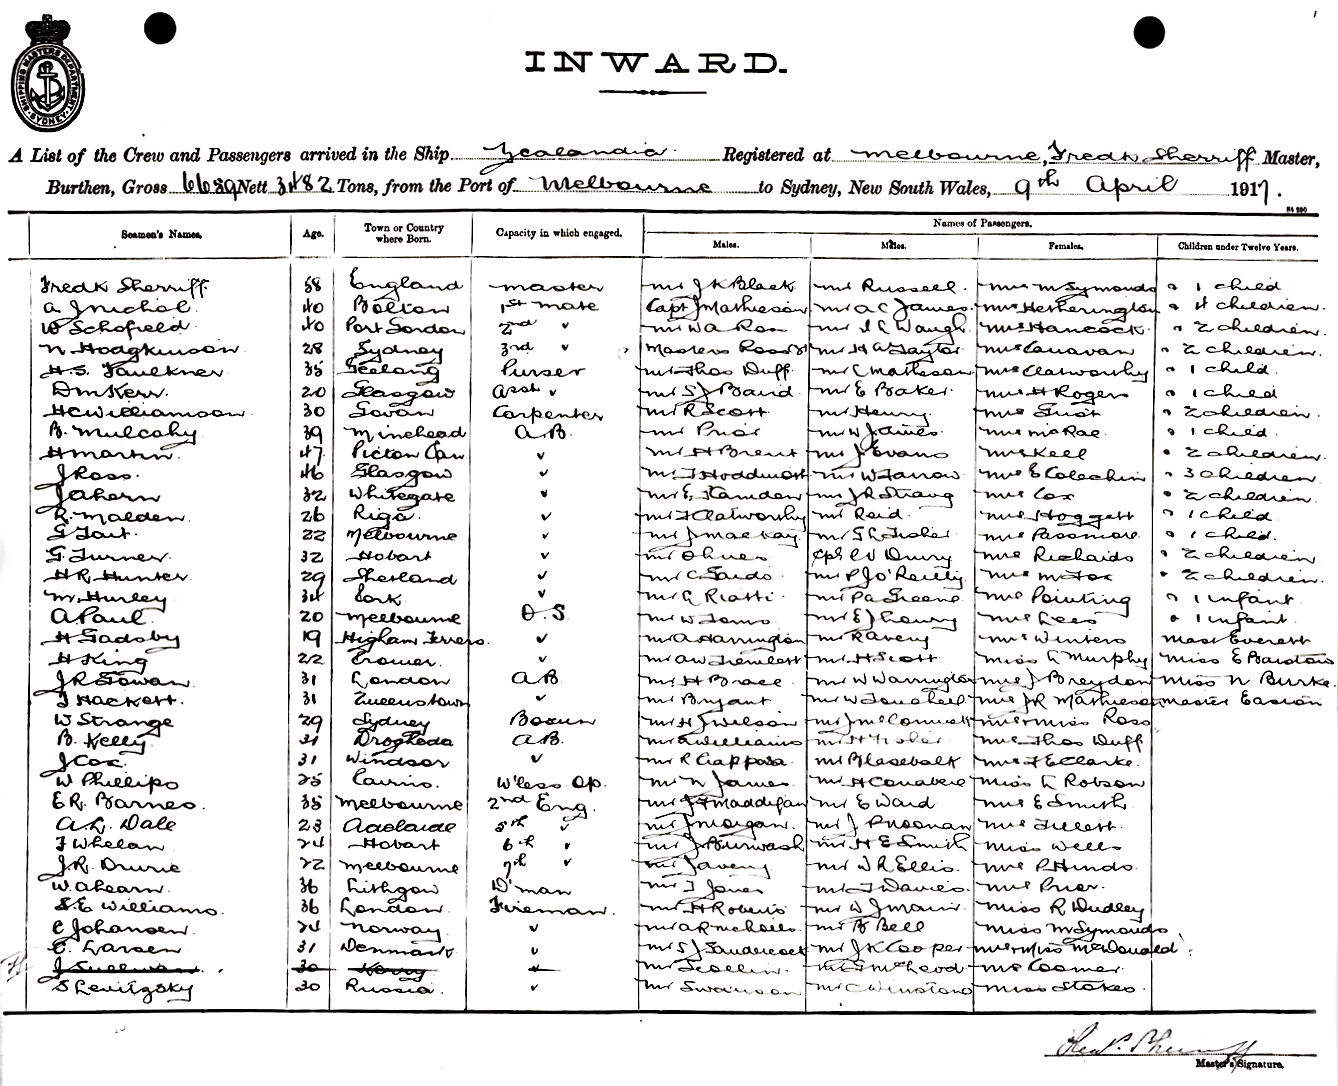 SHIPPING MASTERS DEPARTMENT SYDNEY
INWARD.
A List of the Crew and Passengers arrived in the Ship Zealandia Registered at Melbourne, Fredk Sherriff Master,
Burthen, Gross 6659 Nett 3482 Tons, from the Port of Melbourne to Sydney, New South Wales, 9th April 1917.
Seamen's Names. Age. Town or Country where Born. Capacity in which engaged. Names of Passengers.
Males. Males. Females. Children under Twelve Years.
Fredk Sherriff 58 England Master Mr J K Black Mr Russell Mrs M Symonds " 1 child
A J Nichol 40 Bolton 1st Mate Capt Mathieson Mr A C James Mrs Hetherington " 4 children.
W Schofield 40 Port Gordon 2nd " Mr W A Ross Mr Waugh Mrs Hancock " 2 children.
N. Hodgkinson 28 Sydney 3rd " Masters Ross Mr H A Taylor Mrs Canavan " 2 children.
H. S. Faulkner 35 Geelong Purser Mr Thos Duff Mr C Mathieson Mrs Clatworthy " 1 child.
D M Kerr 20 Glasgow Asst " Mr S J Baird Mr E Baker Mrs H Rogers " 1 child
H C Williamson 30 Govan Carpenter Mr R Scott Mr Henry Mrs " 2 children.
B. Mulcahy 39 Minehead A.B. Mr Prior Mr W James Mrs McRae " 1 child.
H Martin 47 Picton Can " Mr H Brent Mr J Evans Mrs Kell " 2 children.
J Ross 46 Glasgow " Mr T Mr W Farrow Mrs E Colechin " 3 children.
J Ahern 32 Whitegate " Mr E Mr J R Strang Mrs Cox " 2 children.
R. Malden 26 Riga " Mr F Clatworthy Mr Reid Mrs Hoggett " 1 child.
G. Tait 22 Melbourne " Mr J Mackay Mr Fisher Mrs Passmore " 1 child.
G. Turner 32 Hobart " Mr Cpl C V Drury Mrs Richards " 2 children
H R Hunter 29 Shetland " Mr C Mr P J O'Reilly Mrs M Fox " 2 children.
M. Hurley 34 Cork " Mr G Riatti Mr P A Greene Mrs Pointing " 1 infant
A Paul 20 Melbourne O.S Mr W Toms Mr E J Mrs Lees " 1 infant.
H Gadsby 19 Higham Ferrers. " Mr A Harrington Mr R Avery Mrs Winters Mast Everett
H King 22 Cromer. " Mr A W Tremlett Mr H Scott Miss Murphy Miss E Barstow
J R Gowan 31 London A B. Mr H Brace Mr W Warrington Mrs J Breydon Miss N Burke.
T Hackett. 31 Queenstown " Mr Bryant Mr W Mrs J R Mathieson Master Easton
W Strange 29 Sydney Bosun Mr H J Wilson Mr J McConnell Mrs Miss Ross
B. Kelly 31 Drogheda A.B. Mr A Williams Mr H Fisher Mrs Thos Duff
J Cox 31 Windsor " Mr R Mr B Mrs F E Clarke.
W Phillips 25 Cairns. W'less Op. Mr N James Mr H Conabere Miss Robson
E R. Barnes 35 Melbourne 2nd Eng. Mr J H Maddigan Mr E Ward Mrs E Smith.
A. L. Dale 23 Adelaide 5th " Mr J Morgan Mr J P Noonan Mrs Tillett.
T Whelan 24 Hobart 6th " Mr J Burwash Mr H E Smith Miss Wells
J. R. Drurie 22 Melbourne 7th " Mr J Avery Mr W R Ellis. Mrs P Hinds.
W. Ahearn. 36 Lithgow D'man Mr T Jones Mr T Davies. Mrs Prior.
S. E Williams. 36 London Fireman. Mr H Roberts Mr W J Mair. Miss R Dudley
C Johansen 24 Norway " Mr A R Nicholls Mr B Bell Miss M Symonds
C. Larsen 31 Denmark " Mr S J Sandercock Mr J K Cooper Mrs Miss McDonald
J Sullivan 30 Kerry " Mr Scollin. Mr McLeod Mrs Coomer.
S Levitzsky 30 Russia. " Mr Swanson Mr C Winstone Miss Stokes.
Master's Signature.